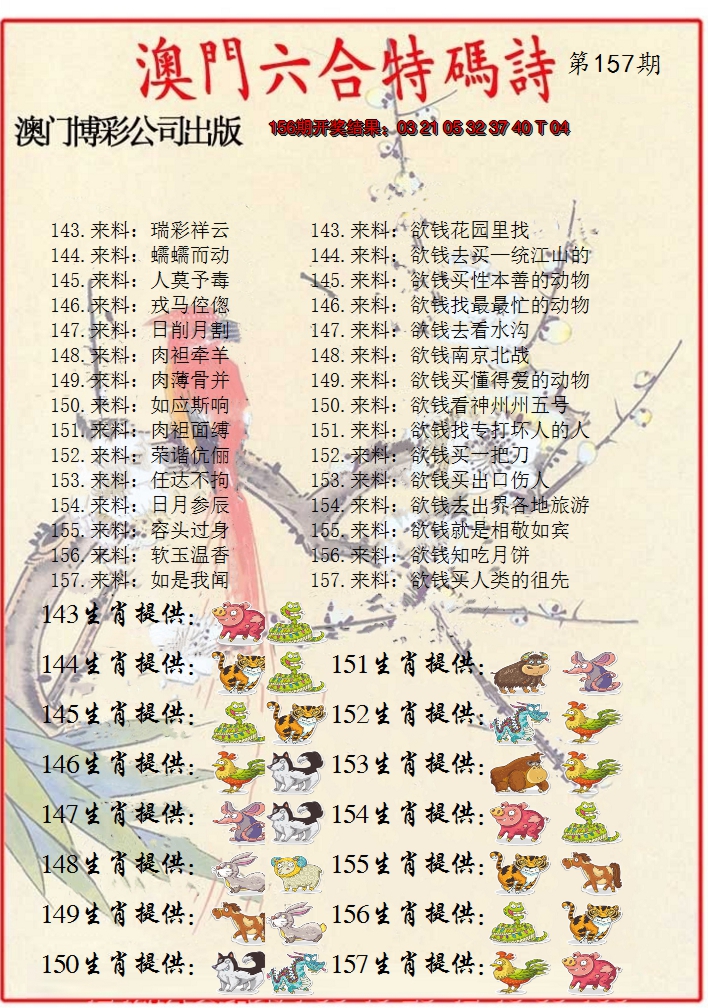 澳門六合特碼詩 第157期
澳门博彩公司出版 156期开奖结果：03 21 05 32 37 40 T 04
143.来料：瑞彩祥云 143.来料：欲钱花园里找
144.来料：蠕蠕而动 144.来料：欲钱去买一统江山的
145.来料：人莫予毒 145.来料：欲钱买性本善的动物
146.来料：戎马倥偬 146.来料：欲钱找最最忙的动物
147.来料：日削月割 147.来料：欲钱去看水沟
148.来料：肉袒牵羊 148.来料：欲钱南京北战
149.来料：肉薄骨并 149.来料：欲钱买懂得爱的动物
150.来料：如应斯响 150.来料：欲钱看神州州五号
151.来料：肉袒面缚 151.来料：欲钱找专打坏人的人
152.来料：荣谐伉俪 152.来料：欲钱买一把刀
153.来料：任达不拘 153.来料：欲钱买出口伤人
154.来料：日月参辰 154.来料：欲钱去出界各地旅游
155.来料：容头过身 155.来料：欲钱就是相敬如宾
156.来料：软玉温香 156.来料：欲钱知吃月饼
157.来料：如是我闻 157.来料：欲钱买人类的祖先
143生肖提供：
144生肖提供： 151生肖提供：
145生肖提供： 152生肖提供：
146生肖提供： 153生肖提供：
147生肖提供： 154生肖提供：
148生肖提供： 155生肖提供：
149生肖提供： 156生肖提供：
150生肖提供： 157生肖提供：